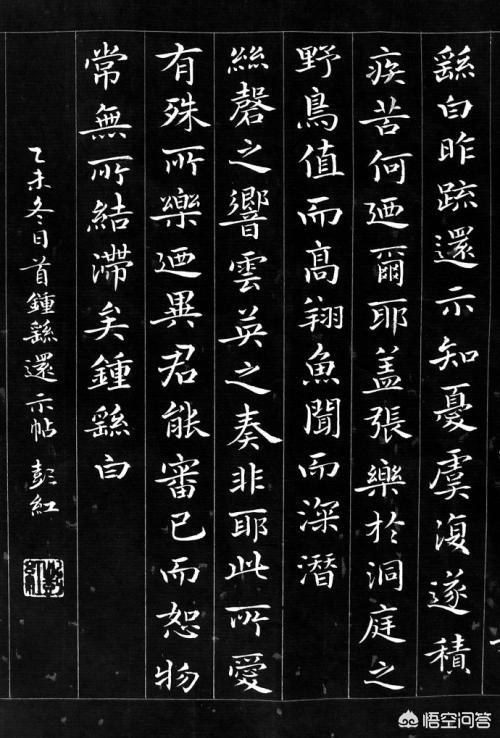 繇白昨疏還示知憂虞復遂積
疾苦何迺爾耶蓋張樂於洞庭之
野鳥值而高翔魚聞而深潛
絲磬之響雲英之奏非耶此所愛
有殊所樂迺異君能審己而恕物
常無所結滯矣鍾繇白
乙未冬日首鍾繇還示帖 彭紅
悟空问答